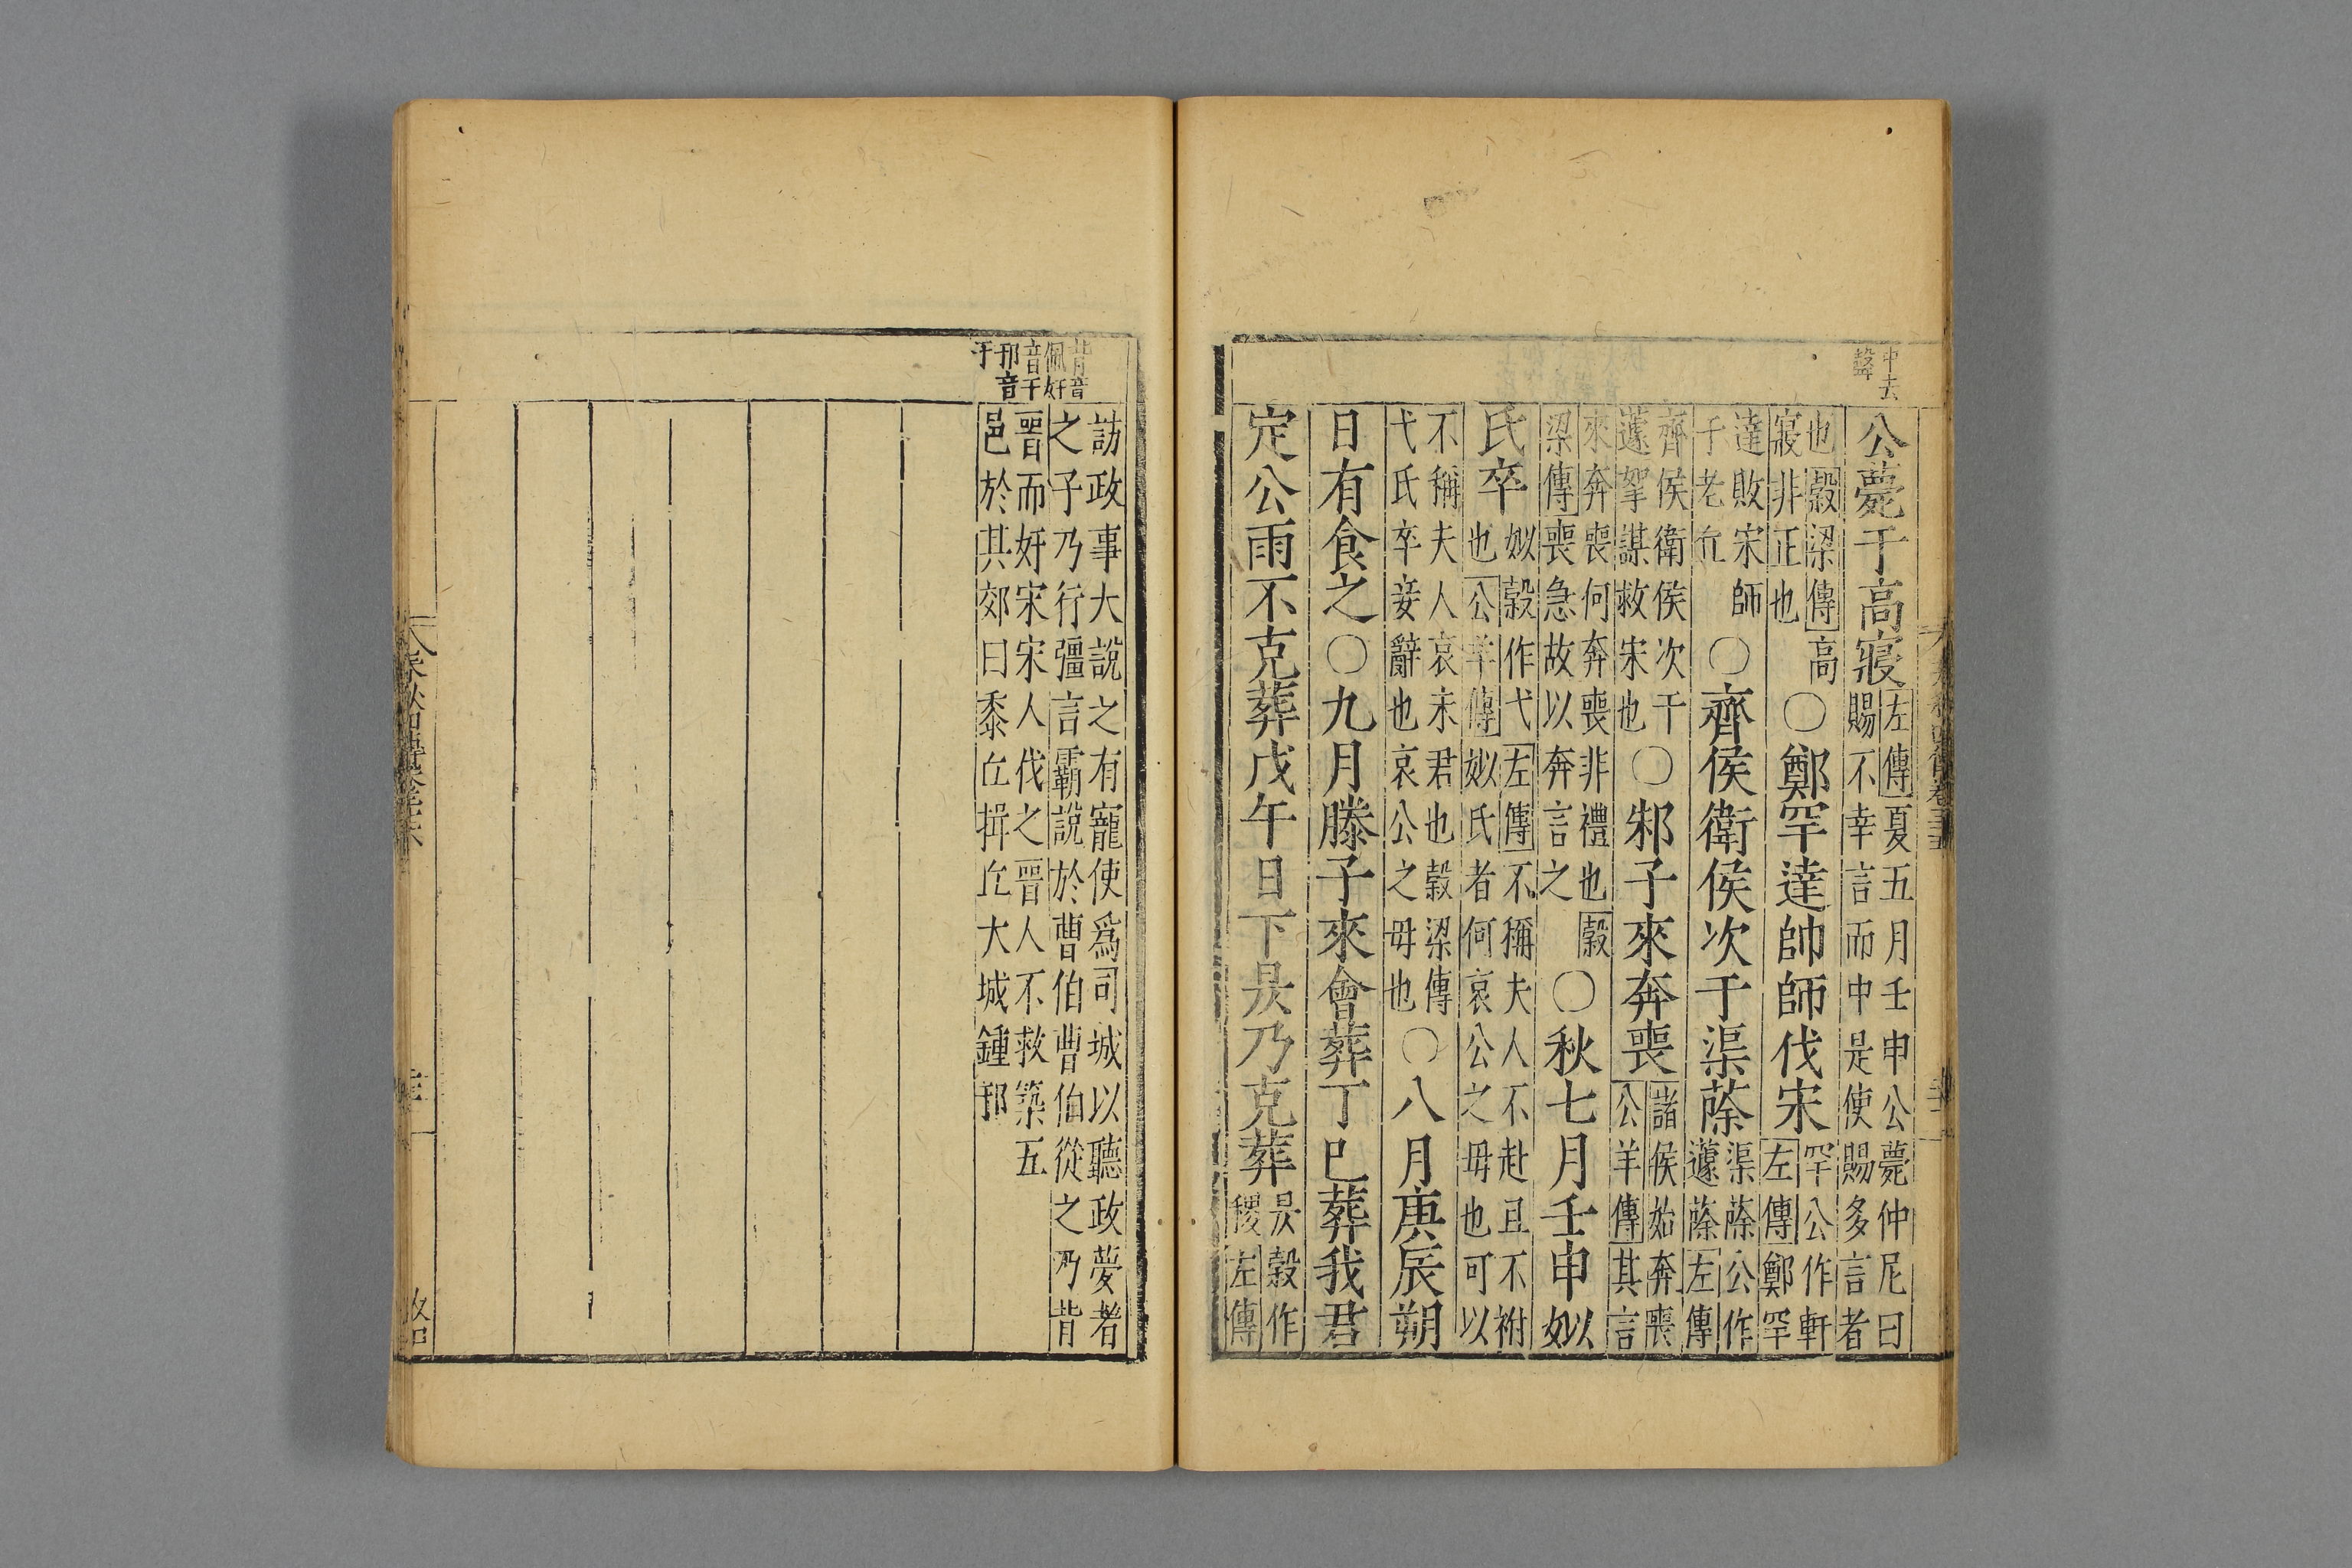 中去
聲
公薨于高寢左傳夏五月壬申公薨仲尼曰
賜不幸言而中是使賜多言者
也穀梁傳高
寢非正也〇鄭罕達帥師伐宋罕公作軒
左傳鄭罕
達敗宋師
于老丘〇齊侯衛侯次于渠蒢渠蒢公作
蘧蒢左傳
齊侯衛侯次于
蘧挐謀救宋也〇邾子來奔喪諸侯始奔喪
公羊傳其言
來奔喪何奔喪非禮也穀
梁傳喪急故以奔言之〇秋七月壬申姒
氏卒姒穀作弋左傳不稱夫人不赴且不祔
也公羊傳姒氏者何哀公之母也可以
不稱夫人哀未君也穀梁傳
弋氏卒妾辭也哀公之母也〇八月庚辰朔
日有食之〇九月滕子來會葬丁巳葬我君
定公雨不克葬戊午日下昃乃克葬昃穀作
稷左傳
背音
佩奸
音干
邘音
于
訪政事大說之有寵使為司城以聽政夢者
之子乃行彊言霸說於曹伯曹伯從之乃背
晉而奸宋宋人伐之晉人不救築五
邑於其郊曰黍丘揖丘大城鍾邘